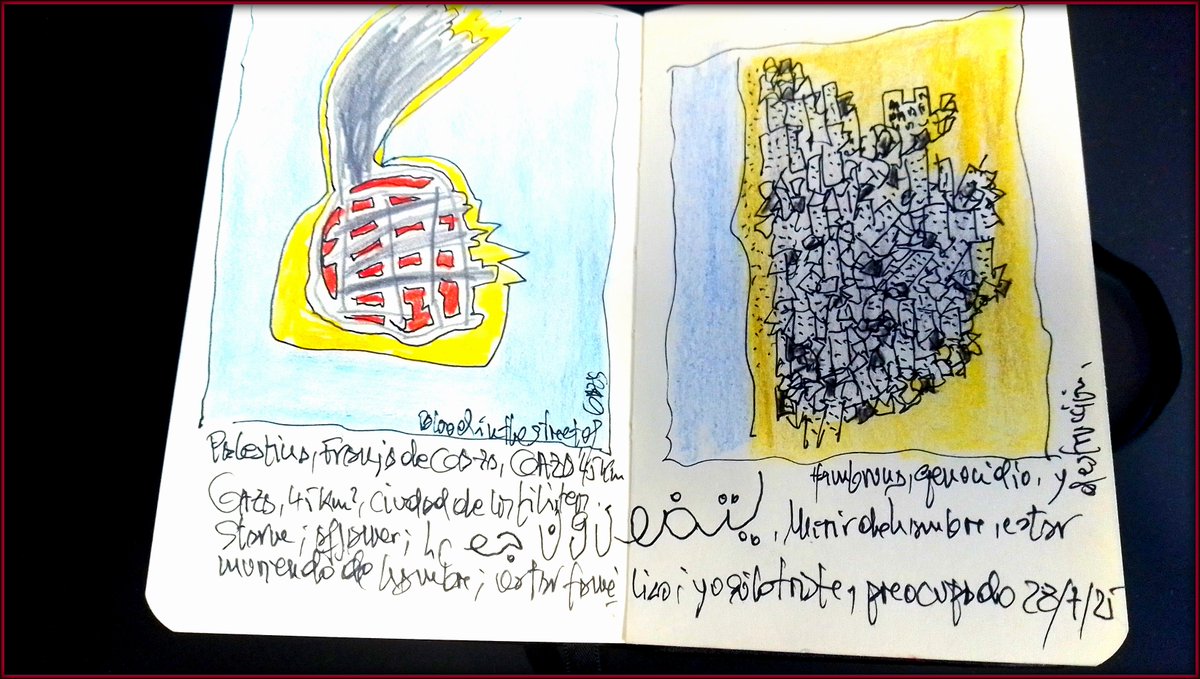 Blood in the street of
Gaza
Palestina, Franja de Gaza, GAZA 45 km
Gaza, 45 km², ciudad de los filisteos.
Starve; يتضورون جوعا
muriendo de hambre; estar famé
Hambruna, genocidio, y
destrucción.
Morir de hambre, estar
lico; yo sólo triste, preocupado 28/7/25